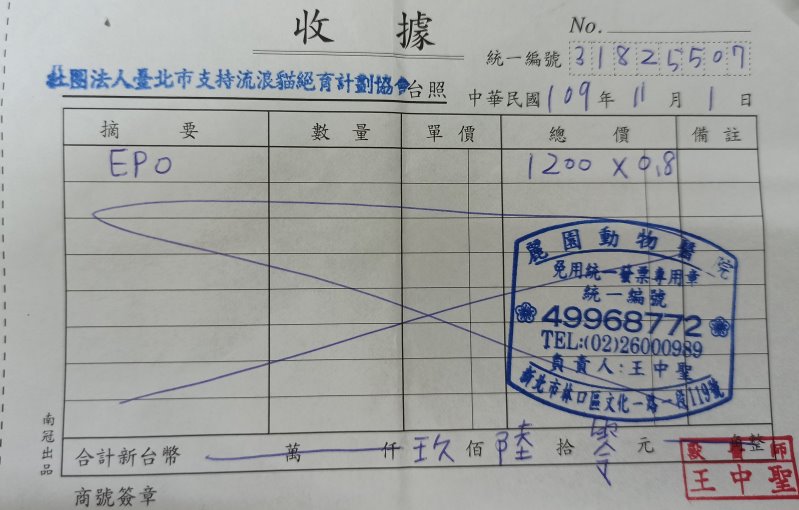 收據
No.
統一編號 31825507
社團法人臺北市支持流浪貓絕育計劃協會 台照
中華民國 109 年 11 月 1 日
摘要 數量 單價 總價 備註
EPO 1200 x 0.8
麗園動物醫院
免用統一發票專用章
統一編號
49968772
TEL:(02)26000989
負責人:王中聖
新北市林口區文化一路一段119號
合計新台幣 萬 仟 玖 佰 陸 拾 零 元 整
獸醫師
王中聖
商號簽章
南冠出品